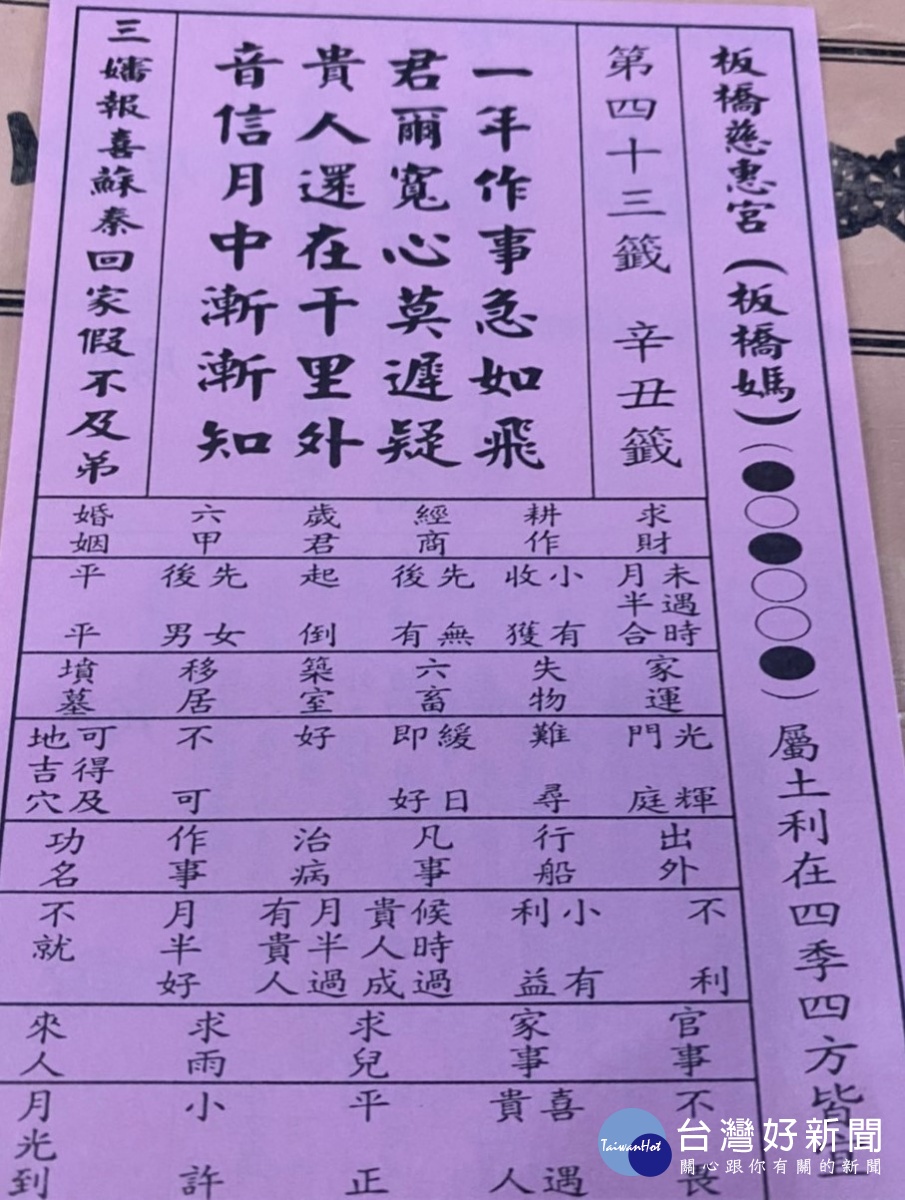 板橋慈惠宮(板橋媽)(●○●○○●)屬土利在四季四方皆宜
第四十三籤 辛丑籤
一年作事急如飛
君爾寬心莫遲疑
貴人還在千里外
音信月中漸漸知
三嬸報喜蘇秦回家假不及弟
求財
未遇時
月半合
耕作
小有
收獲
經商
先無
後有
歲君
起倒
六甲
先女
後男
婚姻
平平
家運
光輝
門庭
失物
難尋
六畜
緩日
即好
築室
好
移居
不可
墳墓
可得及
地吉穴
出外
不利
行船
小有
利益
凡事
候時過
貴人成
治病
月半過
有貴人
作事
月半好
功名
不就
官事
不
家事
喜遇
貴人
求兒
平正
求雨
小許
來人
月光到
TaiwanHot
台灣好新聞
關心跟你有關的新聞